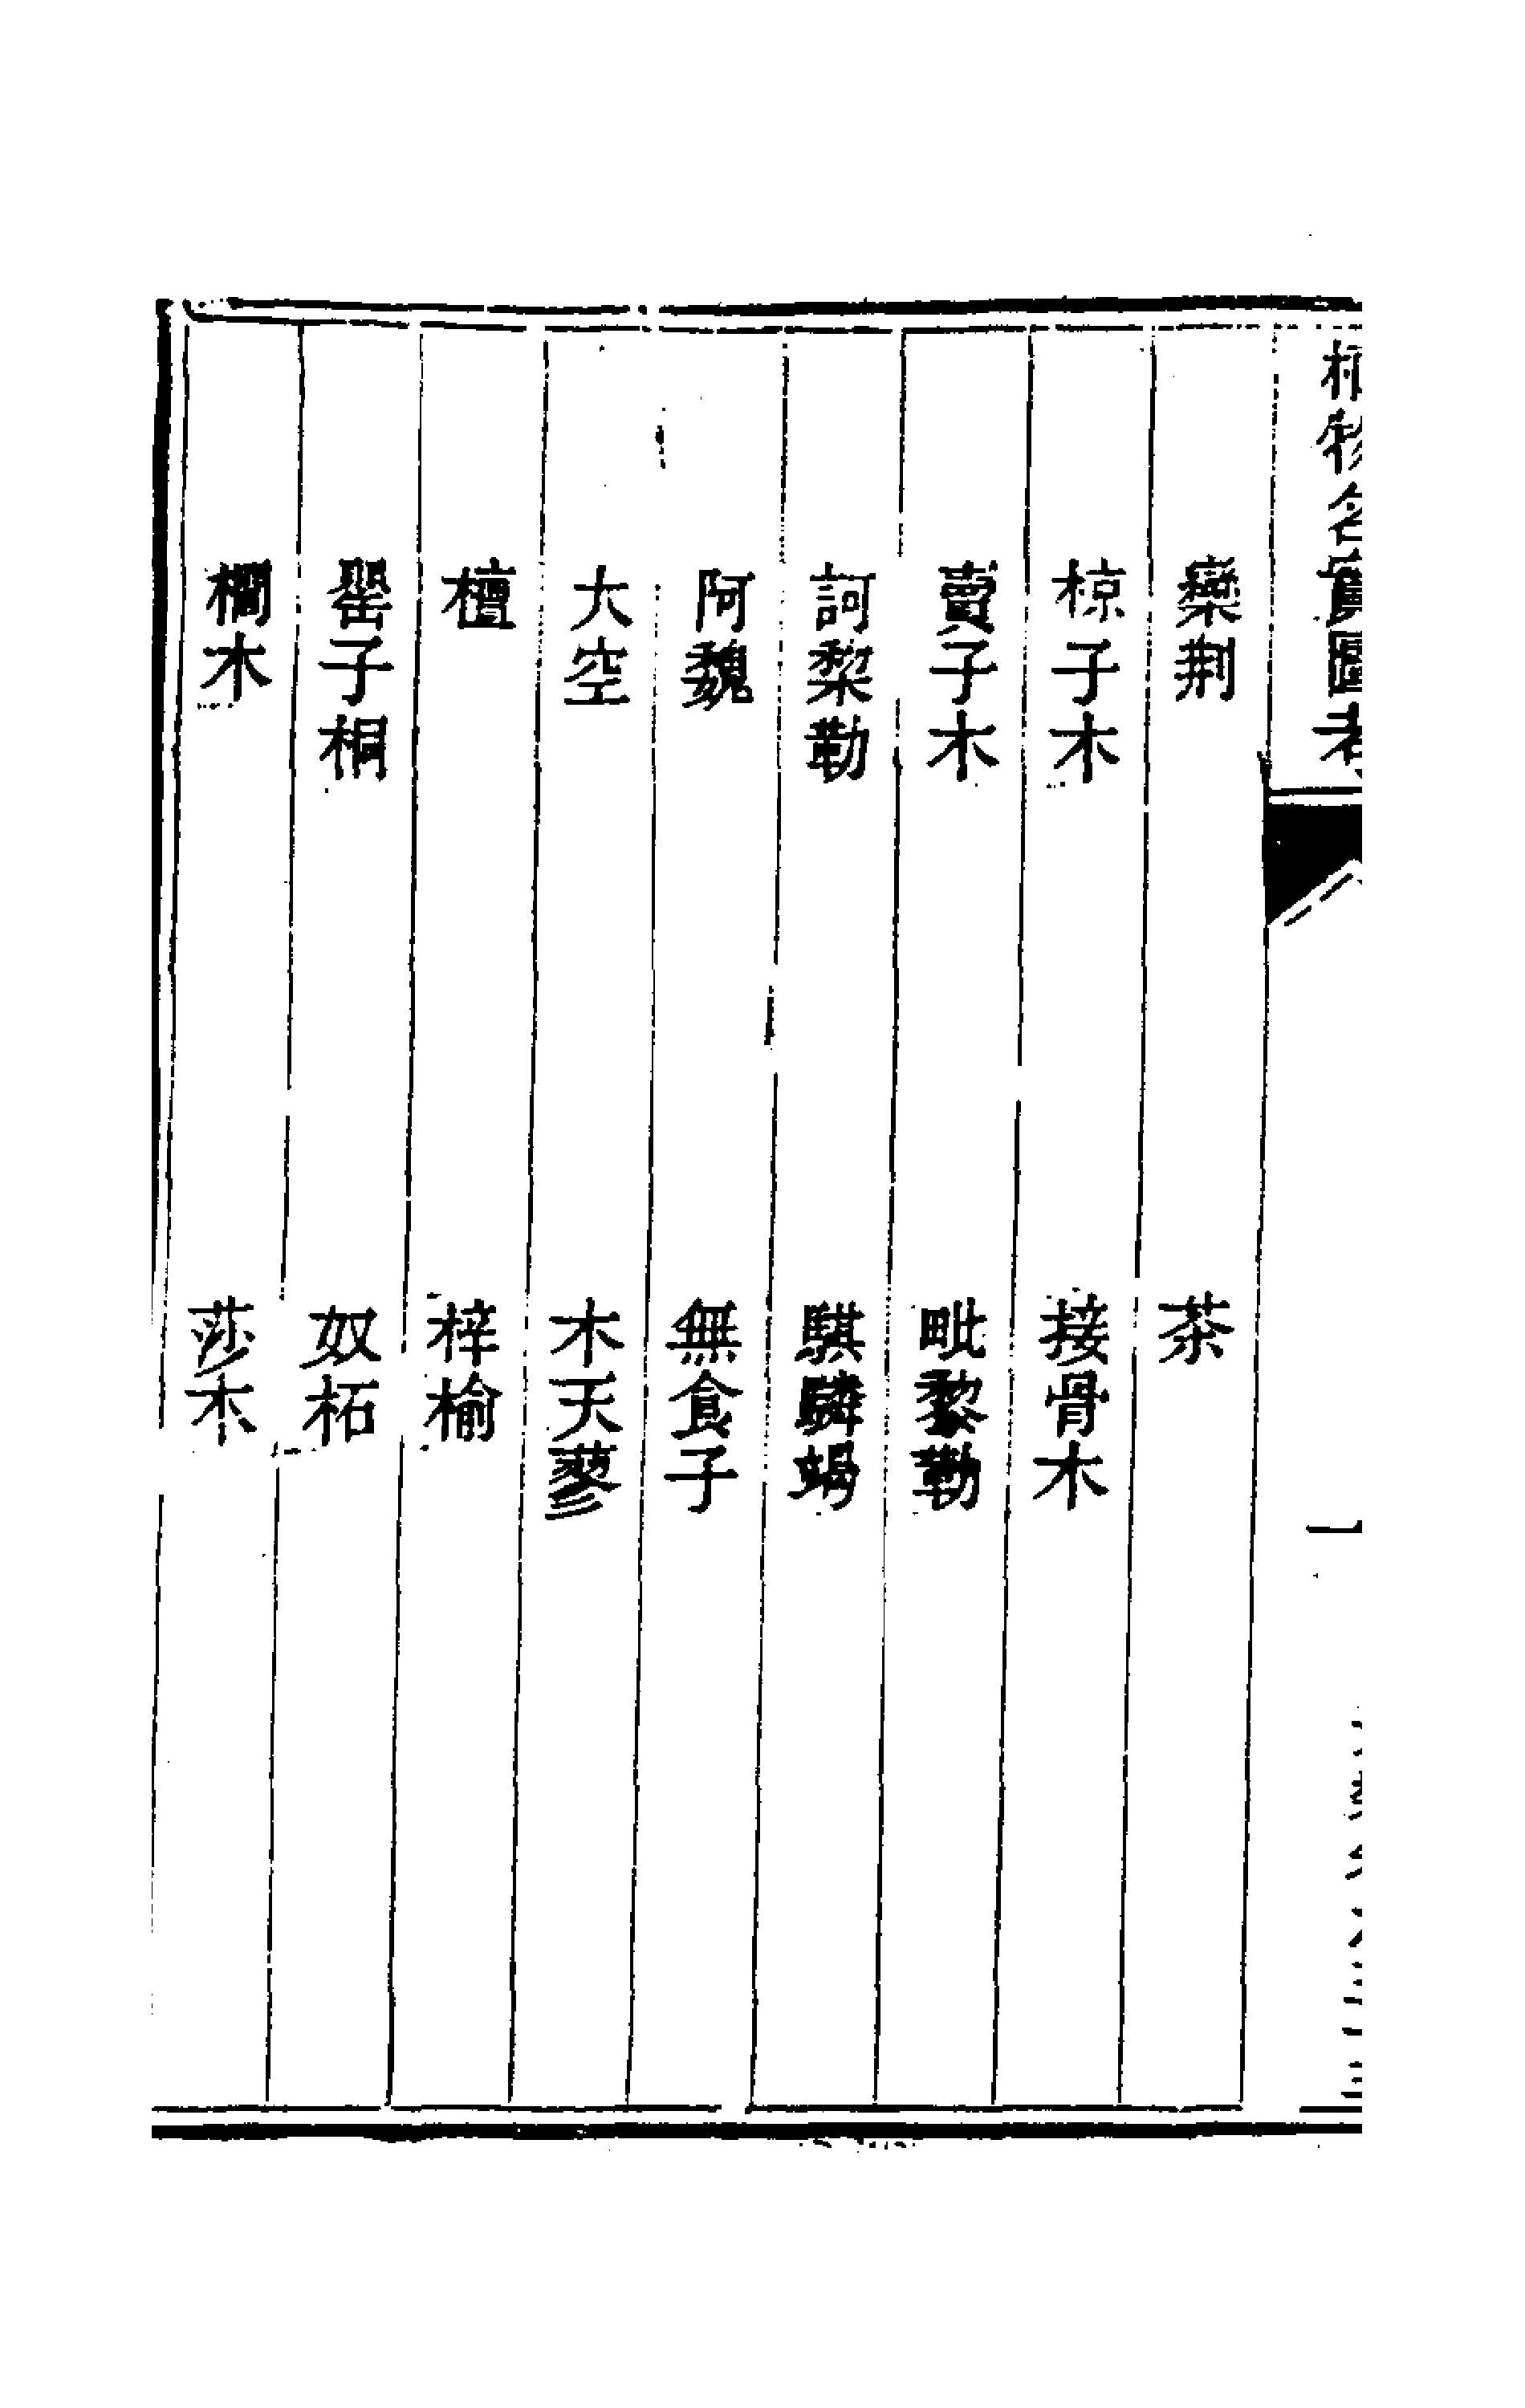 植物名實圖考
欒荆
茶
椋子木
接骨木
賣子木
毗黎勒
訶棃勒
騏驎竭
阿魏
無食子
大空
木天蓼
檀
梓榆
罌子桐
奴柘
櫚木
莎木